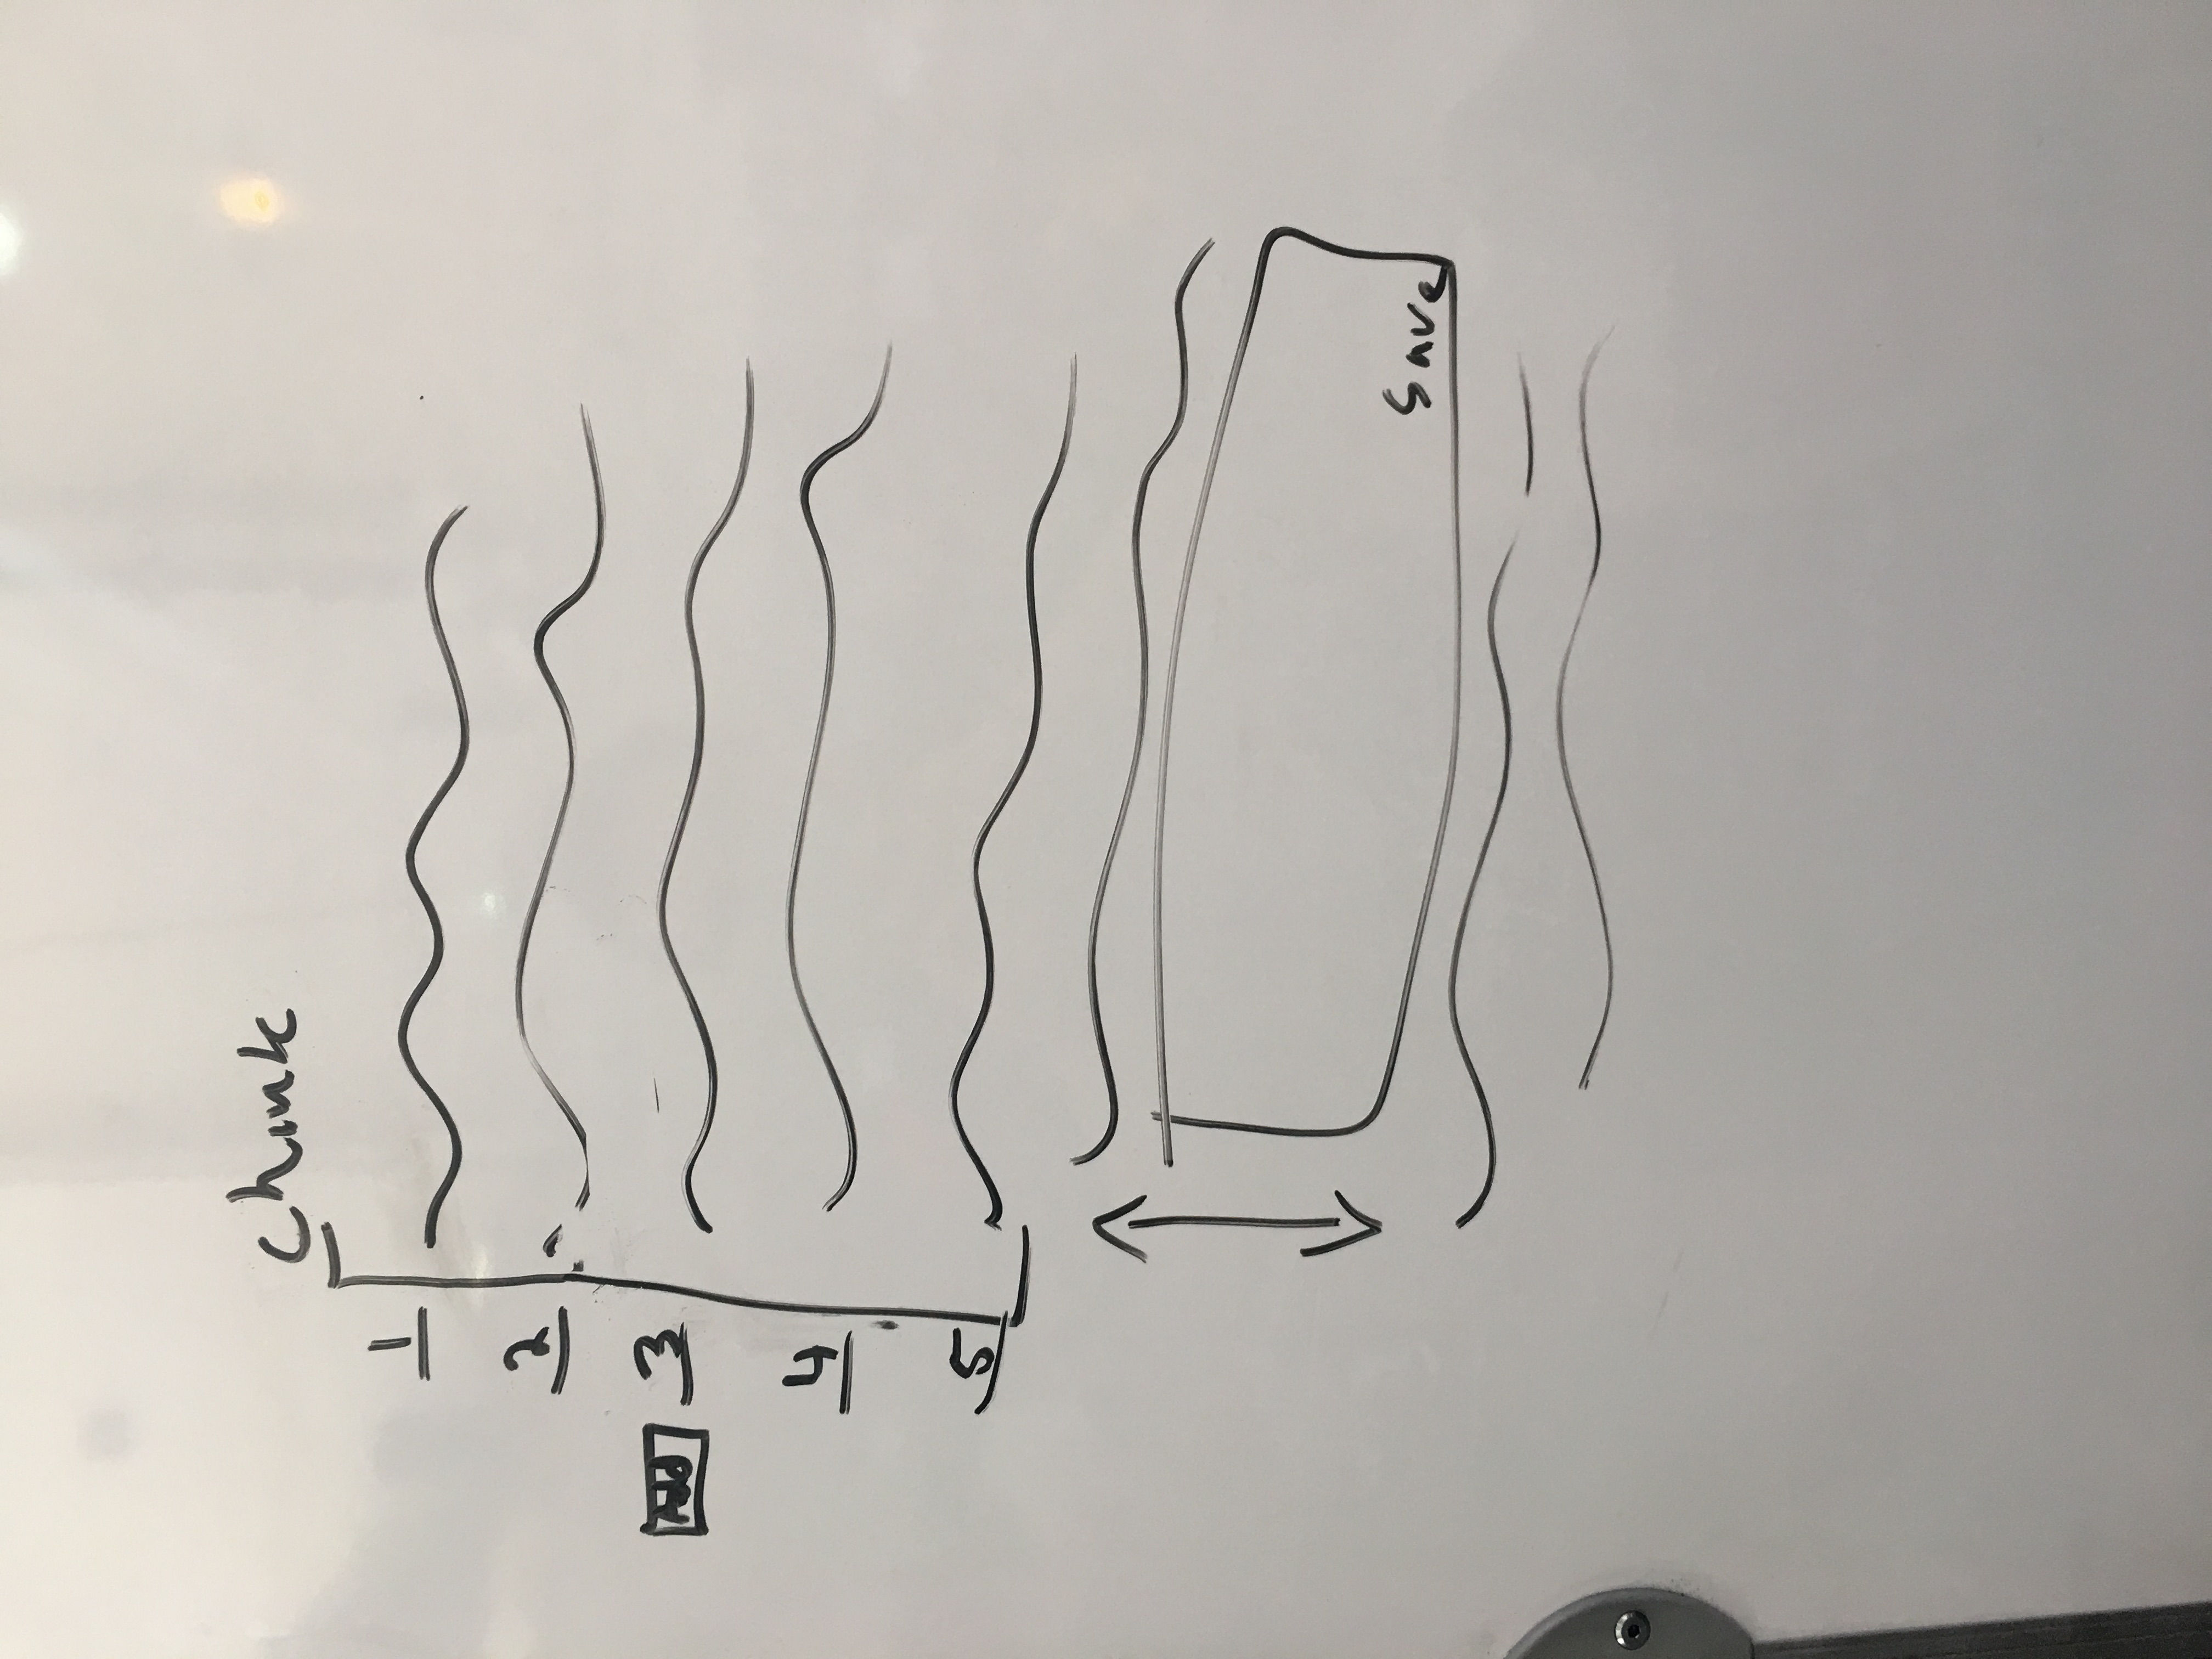 Chunk
1
2
Add 3
4
5
Save